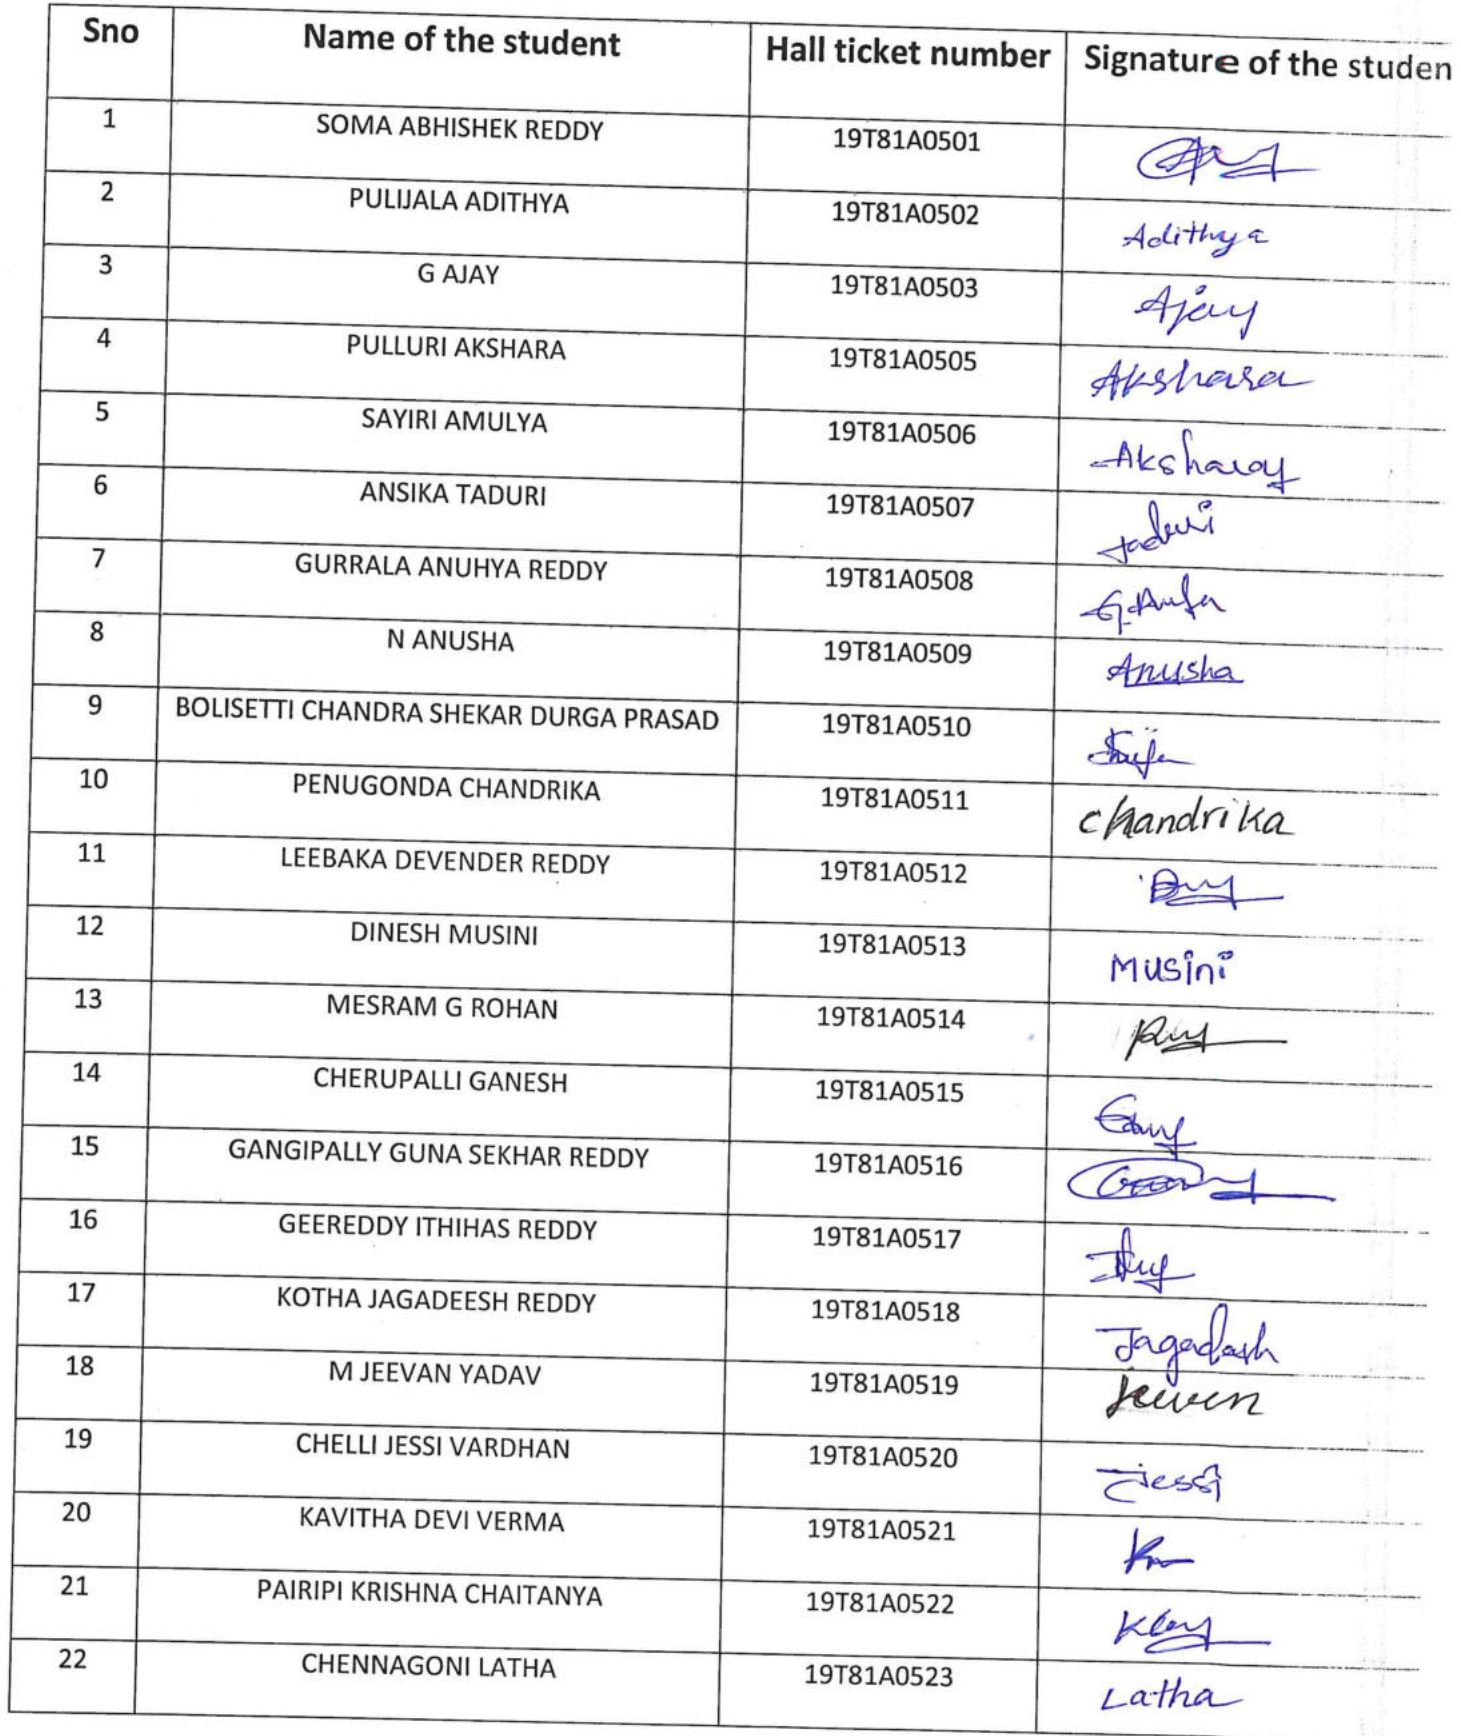 Sno Name of the student Hall ticket number Signature of the studen
1 SOMA ABHISHEK REDDY 19T81A0501
2 PULIJALA ADITHYA 19T81A0502 Adithya
3 G AJAY 19T81A0503 Ajay
4 PULLURI AKSHARA 19T81A0505 Akshara
5 SAYIRI AMULYA 19T81A0506
6 ANSIKA TADURI 19T81A0507 Taduri
7 GURRALA ANUHYA REDDY 19T81A0508
8 N ANUSHA 19T81A0509 Anusha
9 BOLISETTI CHANDRA SHEKAR DURGA PRASAD 19T81A0510
10 PENUGONDA CHANDRIKA 19T81A0511 Chandrika
11 LEEBAKA DEVENDER REDDY 19T81A0512
12 DINESH MUSINI 19T81A0513 Musini
13 MESRAM G ROHAN 19T81A0514
14 CHERUPALLI GANESH 19T81A0515
15 GANGIPALLY GUNA SEKHAR REDDY 19T81A0516
16 GEEREDDY ITHIHAS REDDY 19T81A0517
17 KOTHA JAGADEESH REDDY 19T81A0518 Jagadash
18 M JEEVAN YADAV 19T81A0519
19 CHELLI JESSI VARDHAN 19T81A0520 Jessi
20 KAVITHA DEVI VERMA 19T81A0521
21 PAIRIPI KRISHNA CHAITANYA 19T81A0522
22 CHENNAGONI LATHA 19T81A0523 Latha